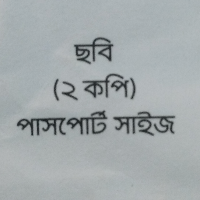 ছবি
(২ কপি)
পাসপোর্ট সাইজ